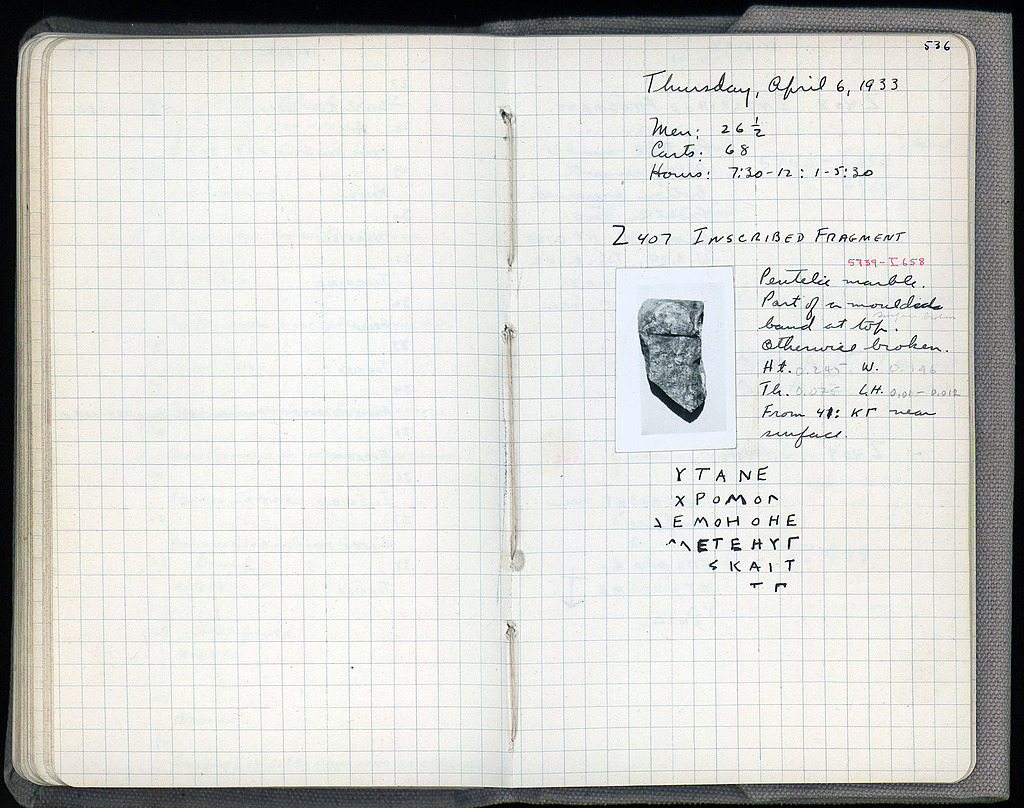 536
Thursday, April 6, 1933
Men: 26 1/2
Carts: 68
Hours: 7:30-12: 1-5:30
Σ 407 INSCRIBED FRAGMENT
5739-I 658
Pentelic marble.
Part of a moulded
band at top.
Otherwise broken.
Ht. 0.245 W. 0.146
Th. 0.075 LH. 0.01-0.012
From 41: ΚΓ near
surface.
ΥΤΑΝΕ
ΧΡΟΜΟΓ
ΕΜΟΗΟΗΕ
ΕΤΕΗΥΓ
ΚΑΙΤ
Τ Γ